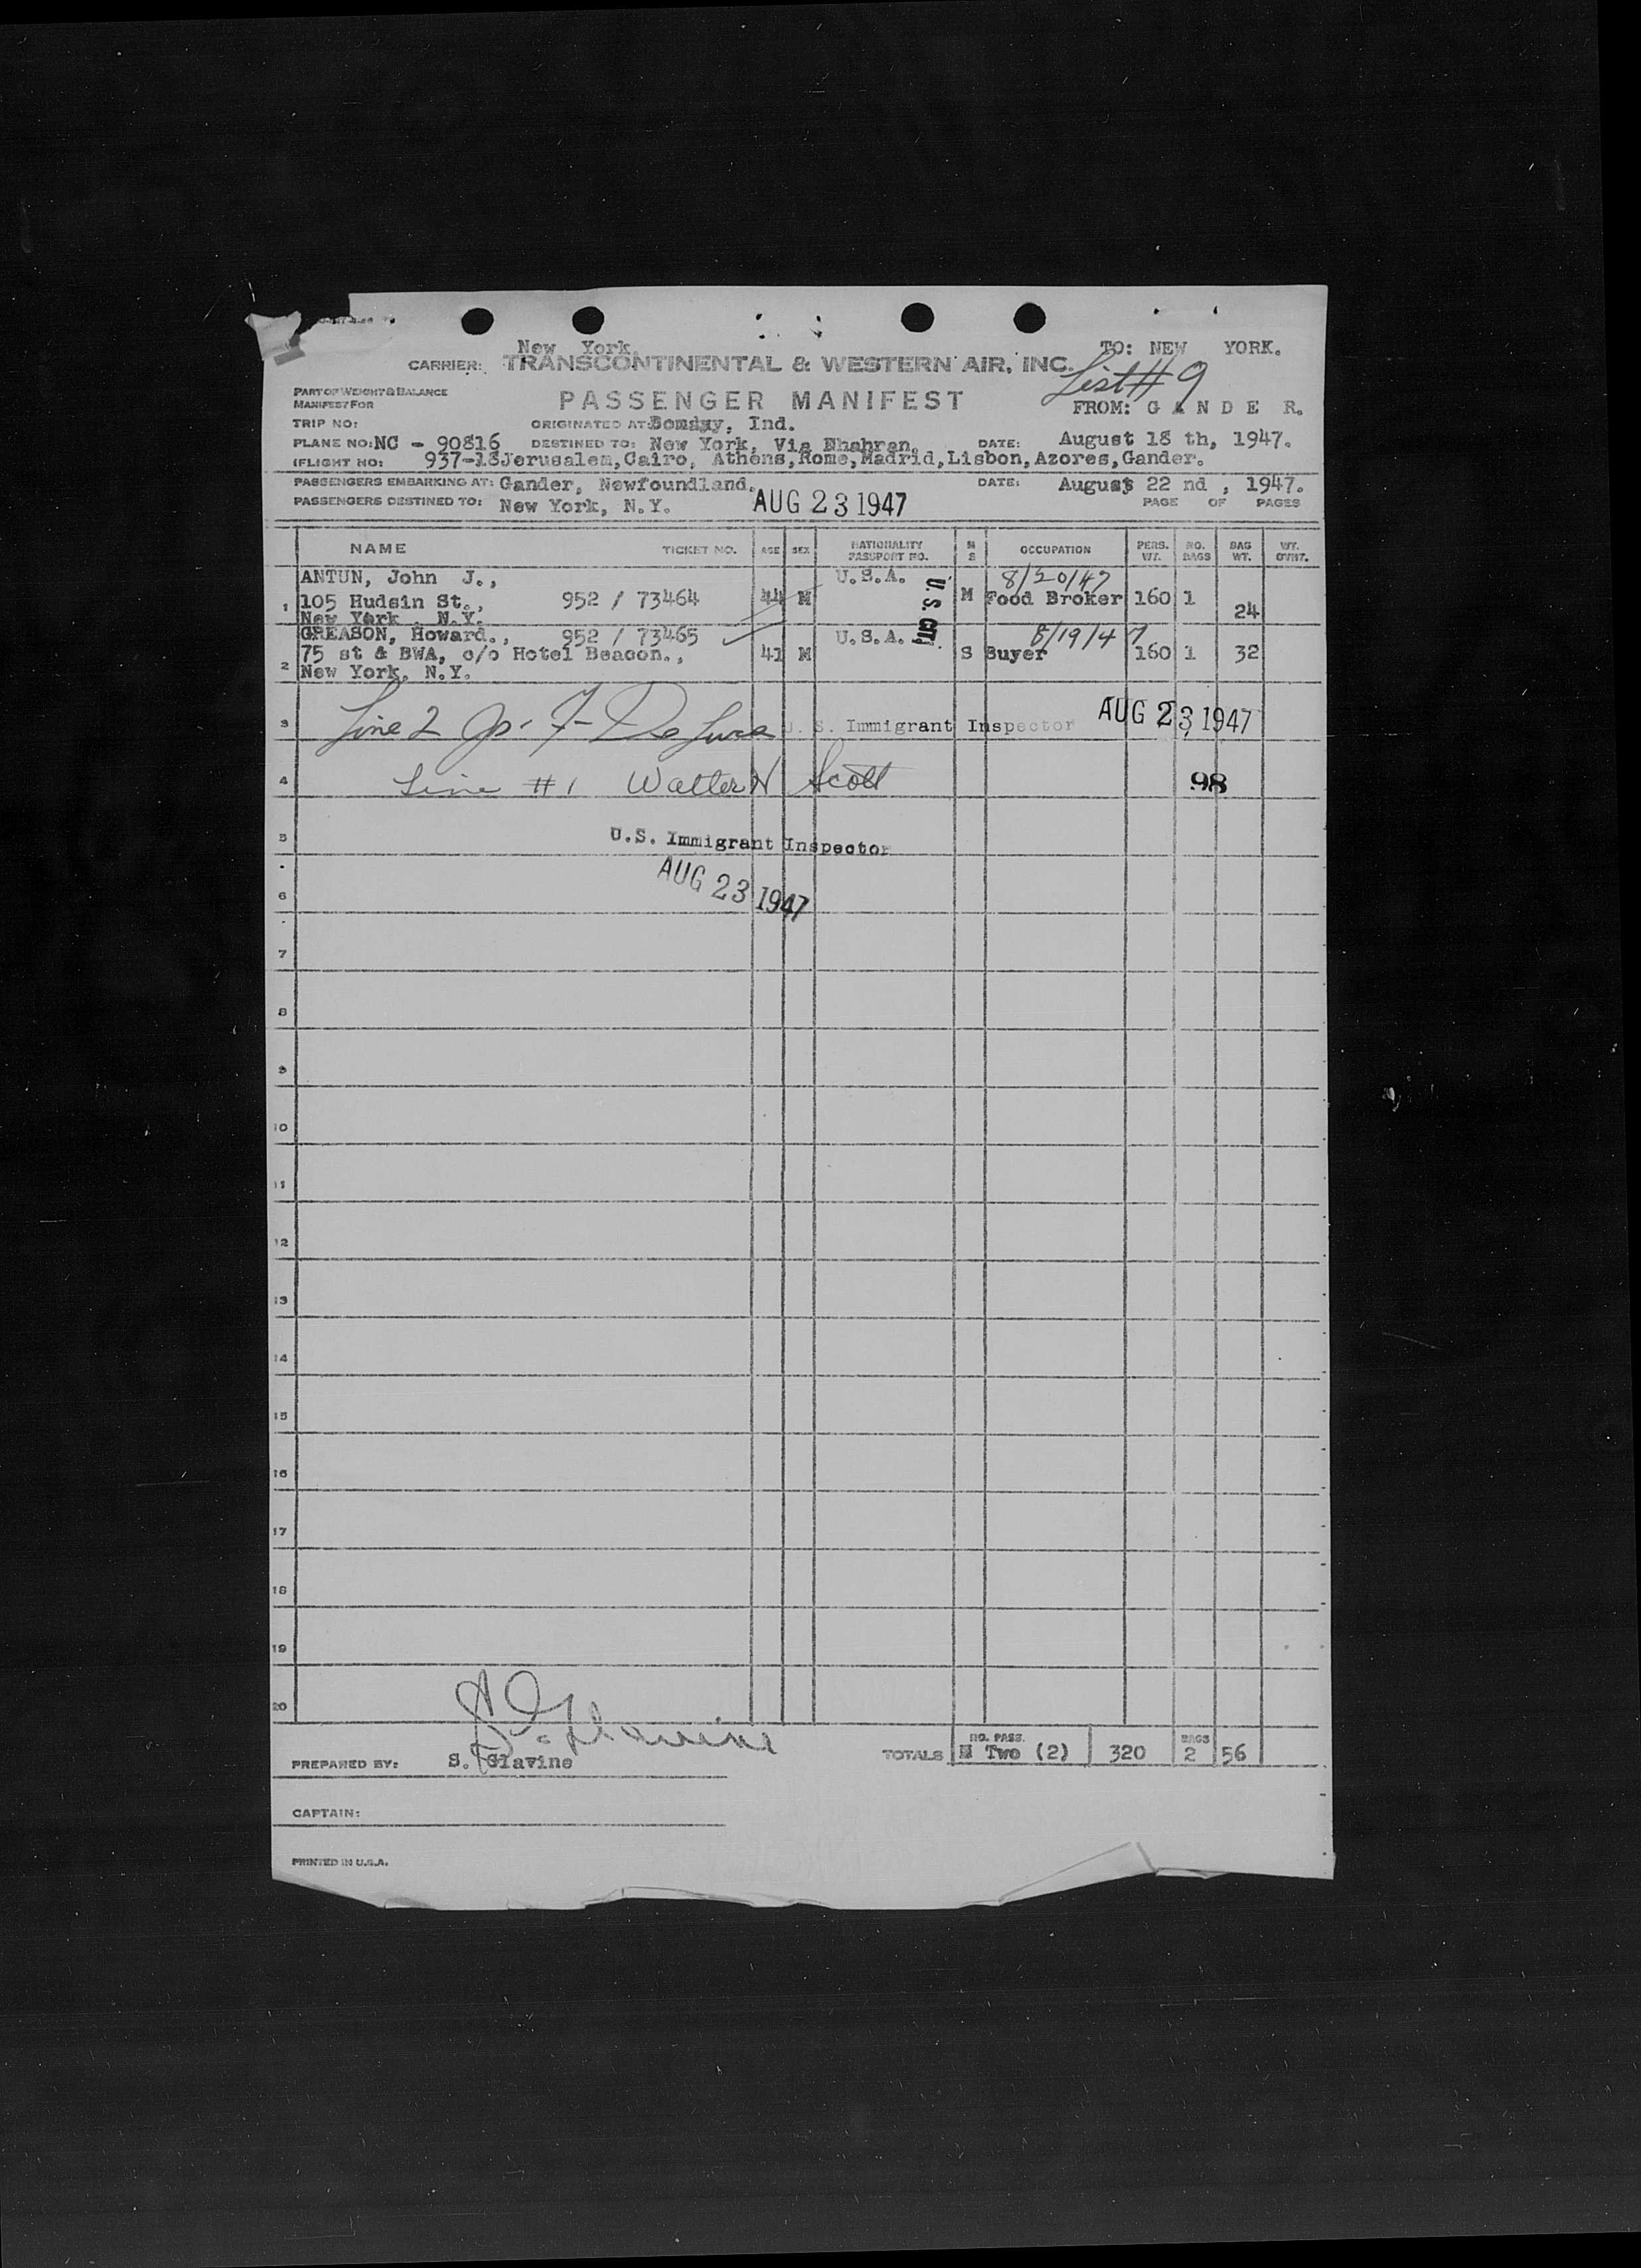 New York.
TO: NEW YORK.
CARRIER: TRANSCONTINENTAL & WESTERN AIR, INC.
List # 9
PART OF WEIGHT & BALANCE
MANIFEST FOR
PASSENGER MANIFEST
FROM: G A N D E R.
TRIP NO:
ORIGINATED AT: Ind.
PLANE NO: NC - 90816 DESTINED TO: New York, Via Dhahran, DATE: August 18 th, 1947.
(FLIGHT NO: 937-18 Jerusalem, Cairo, Athens, Rome, Madrid, Lisbon, Azores, Gander.
PASSENGERS EMBARKING AT: Gander, Newfoundland. DATE: August 22 nd , 1947.
PASSENGERS DESTINED TO: New York, N.Y. AUG 23 1947 PAGE OF PAGES
NAME TICKET NO. AGE SEX NATIONALITY PASSPORT NO. M S OCCUPATION PERS. WT. NO. BAGS BAG WT. WT.
ANTUN, John J., U.S.A. 8/20/47
1 105 Hudsin St., 952 / 73464 44 M U. S. CIT. M Food Broker 160 1 24
New York N.Y.
GREASON, Howard., 952 / 73465 U.S.A. 8/19/47
2 75 st & BWA, c/o Hotel Beacon., 41 M S Buyer 160 1 32
New York, N.Y.
3 Line 2 U. S. Immigrant Inspector AUG 23 1947
4 Line #1 Walter N Scott 98
5 U.S. Immigrant Inspector
6 AUG 23 1947
7
8
9
10
11
12
13
14
15
16
17
18
19
20
S. Glavine
PREPARED BY: S. Glavine
TOTALS NO. PASS. Two (2) 320 BAGS 2 56
CAPTAIN:
PRINTED IN U.S.A.